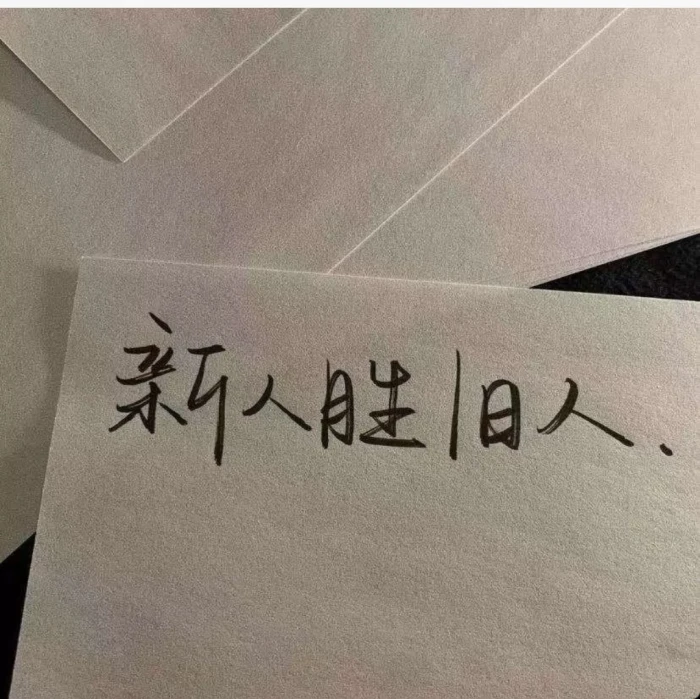 新人胜旧人.